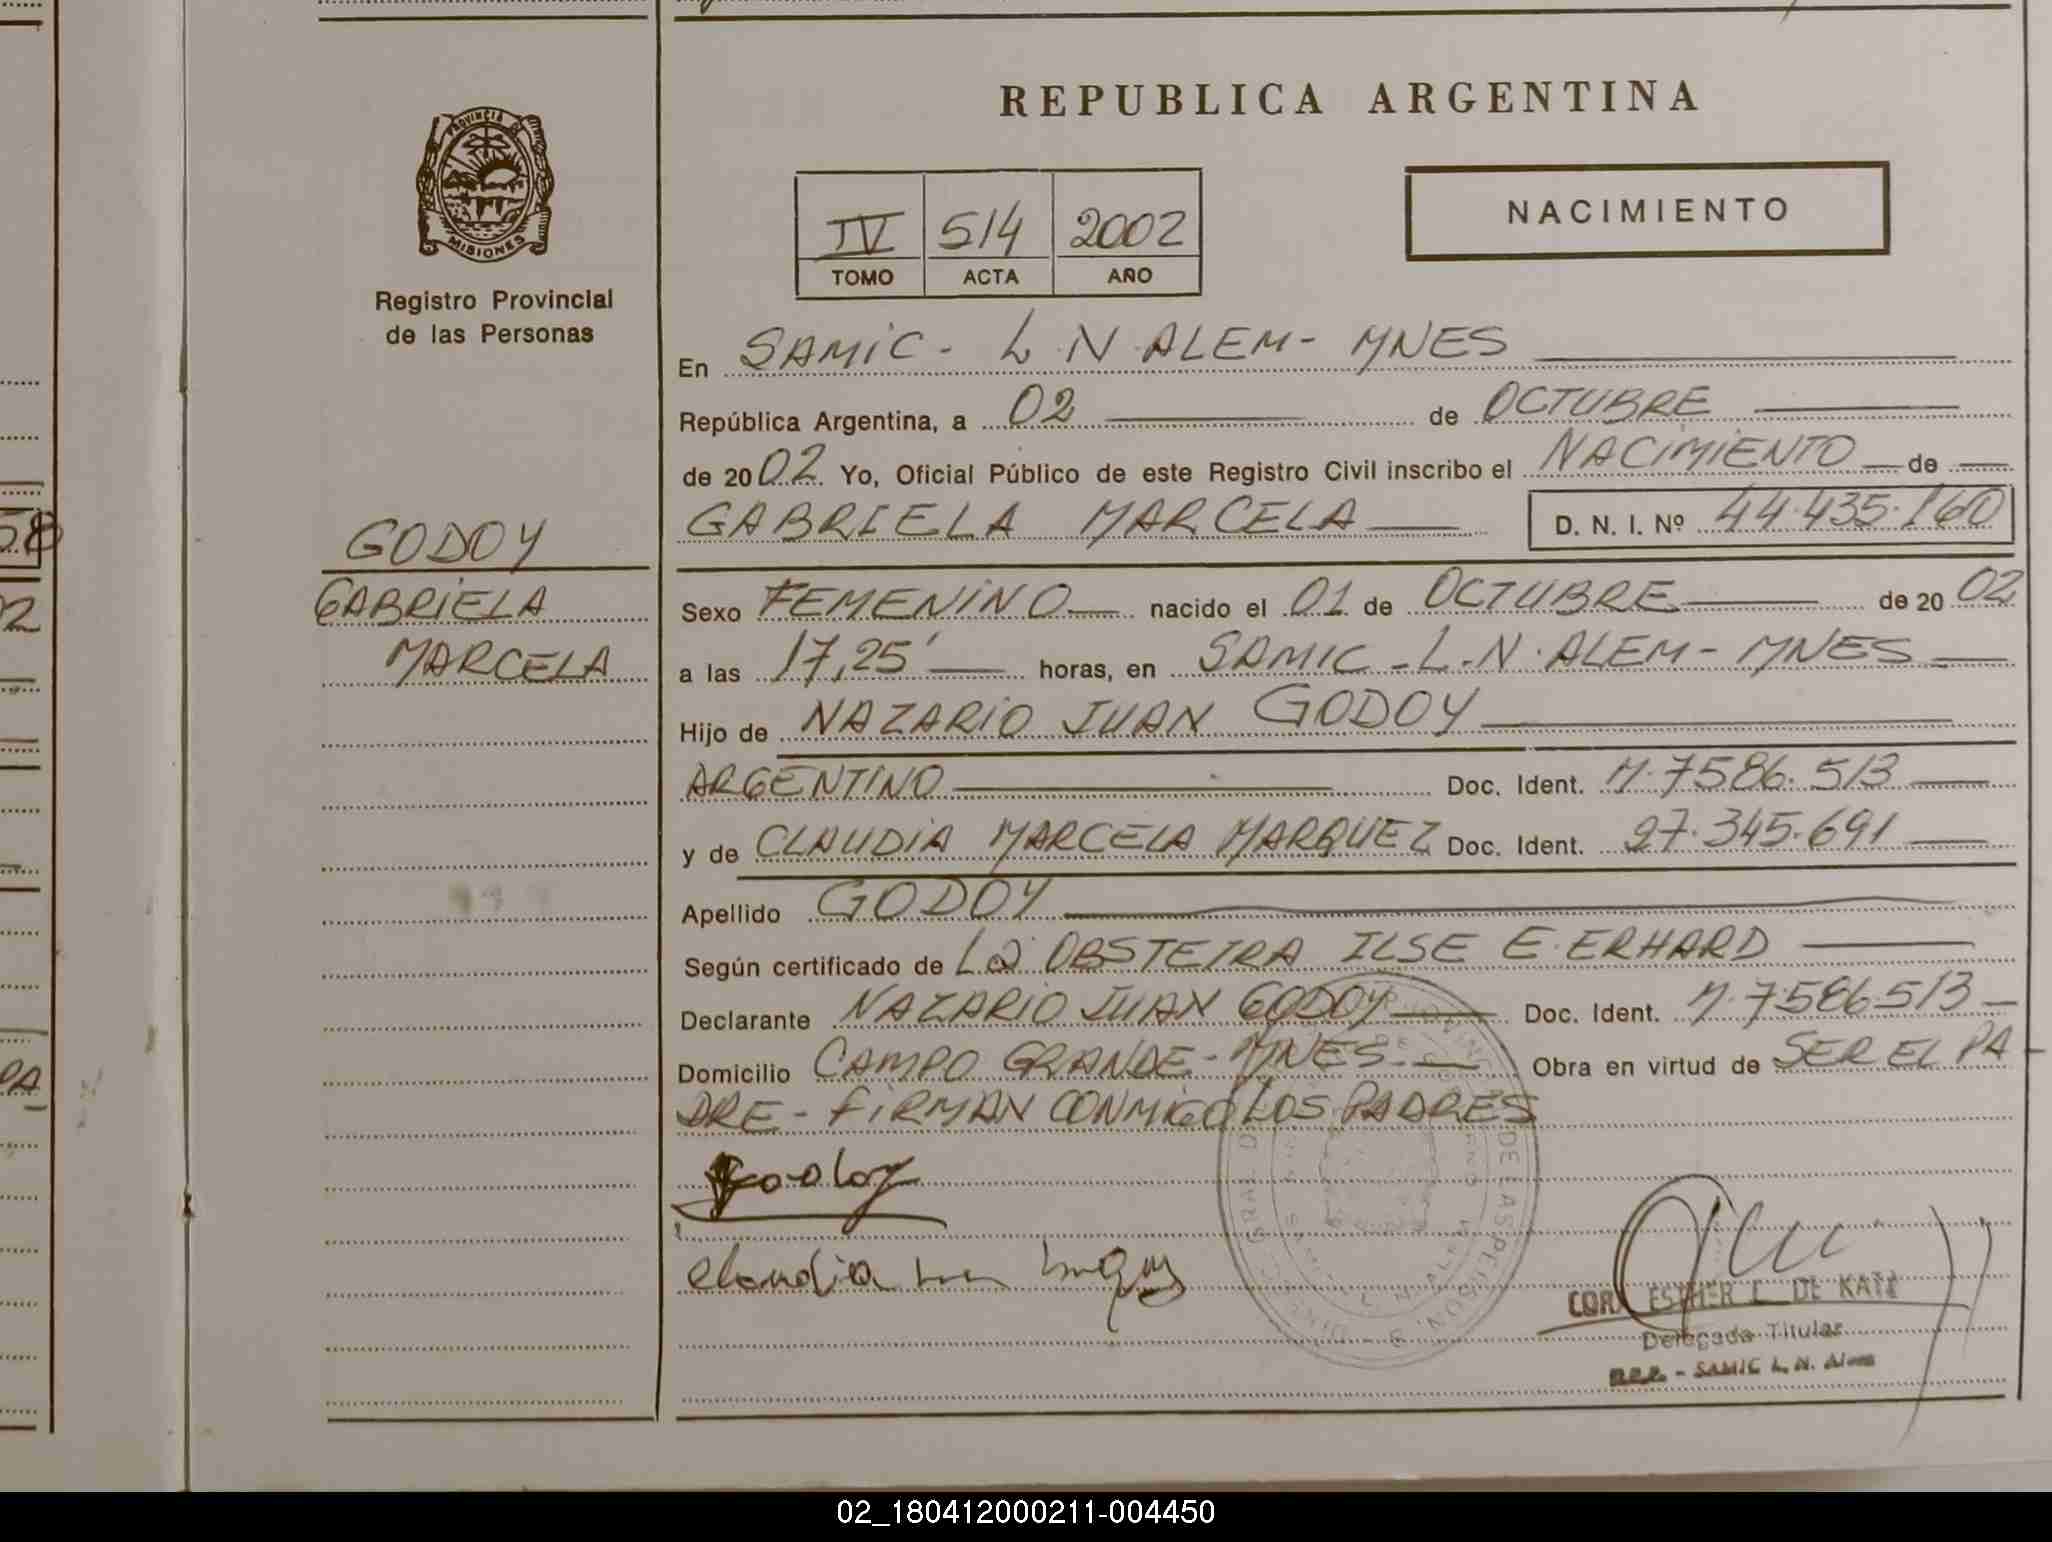 REPUBLICA ARGENTINA
PROVINCIA DE
MISIONES
Registro Provincial
de las Personas
IV 514 2002
TOMO ACTA AÑO
NACIMIENTO
En SAMIC - L.N. ALEM - MNES
República Argentina, a 02 de OCTUBRE
de 2002. Yo, Oficial Público de este Registro Civil inscribo el NACIMIENTO de
GABRIELA MARCELA D. N. I. Nº 44.435.160
GODOY
GABRIELA
MARCELA
Sexo FEMENINO nacido el 01 de OCTUBRE de 2002
a las 17,25' horas, en SAMIC - L.N. ALEM - MNES
Hijo de NAZARIO JUAN GODOY
ARGENTINO Doc. Ident. M.7586.513
y de CLAUDIA MARCELA MARQUEZ Doc. Ident. 27.345.691
Apellido GODOY
Según certificado de La OBSTETRA ILSE E. ERHARD
Declarante NAZARIO JUAN GODOY Doc. Ident. M.7.586.513
Domicilio CAMPO GRANDE - MNES Obra en virtud de SER EL PA-
DRE - FIRMAN CONMIGO LOS PADRES
Godoy
Claudia
COR. ESTHER L. DE KATZ
Delegada Titular
R.P.P. - SAMIC L. N. Alem
58
02
PA
02_180412000211-004450